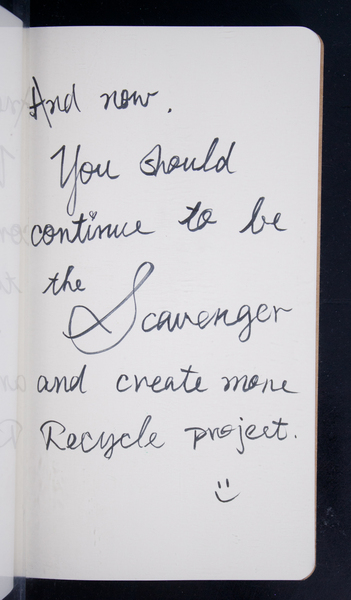 And now.
You should
continue to be
the
Scavenger
and create more
Recycle project.